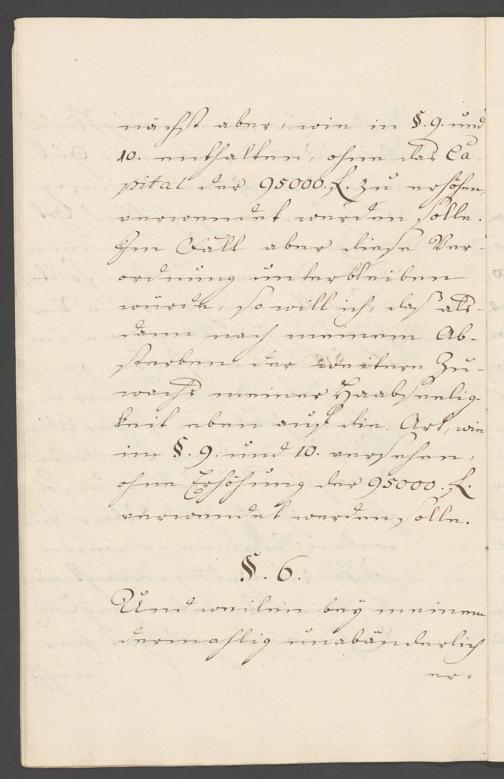 nächst aber, wie in §. 9. und
10. enthalten, ohne das Ca-
pital der 95000. f. zu erhöhen,
verwendet werden solle.
Im Fall aber diese Ver-
ordnung unterbleiben
würde, so will ich, daß als-
dann nach meinem Ab-
sterben der weitere Zu-
wachs meiner Haabseelig-
keit eben auf die Art, wie
im §. 9. und 10. versehen,
ohne Erhöhung der 95000. f.
verwendet werden solle.
§. 6.
Und weilen bey meinem
dermahlig unabänderlich
er-